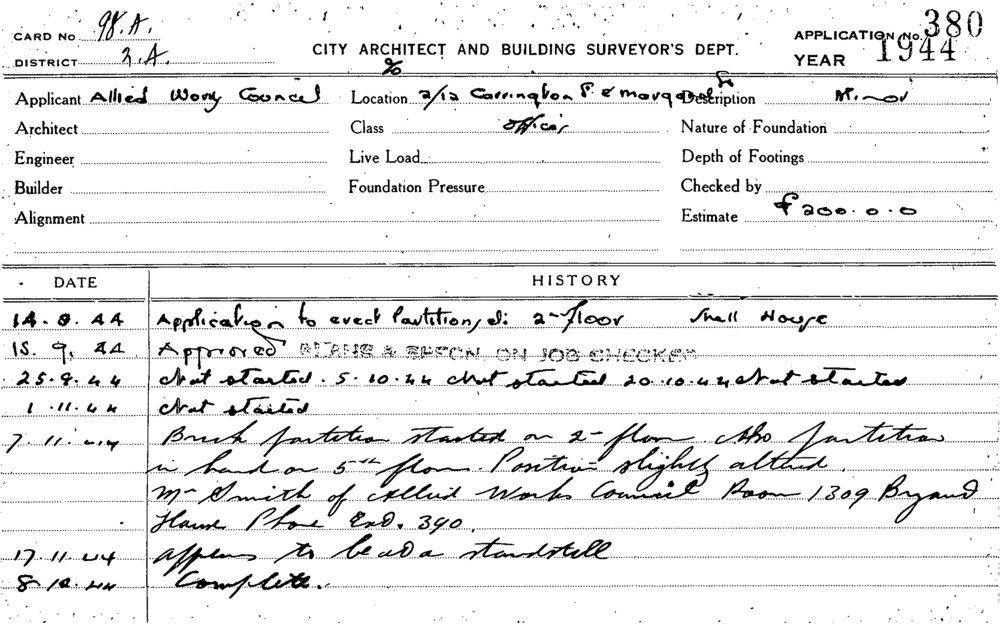 CARD No 98.A.
APPLICATION No. 380
DISTRICT 2.A.
CITY ARCHITECT AND BUILDING SURVEYOR'S DEPT.
YEAR 1944
Applicant Allied Works Council
Location 2/12 Carrington St & Margaret St
Description Minor
Architect
Class offices
Nature of Foundation
Engineer
Live Load
Depth of Footings
Builder
Foundation Pressure
Checked by
Alignment
Estimate £200.0.0
DATE HISTORY
14.9.44 Application to erect Partition, 2nd floor Shell House
15.9.44 Approved PLANS & SPECN. ON JOB CHECKED
25.9.44 Not started. 5.10.44 Not started 20.10.44 Not started
1.11.44 Not started
7.11.44 Brick partition started on 2nd floor. Also partition
in hand on 5th floor. Position slightly altered.
Mr Smith of Allied Works Council Room 1309
House Phone Ext. 390.
17.11.44 appears to be at a standstill
8.12.44 Complete.